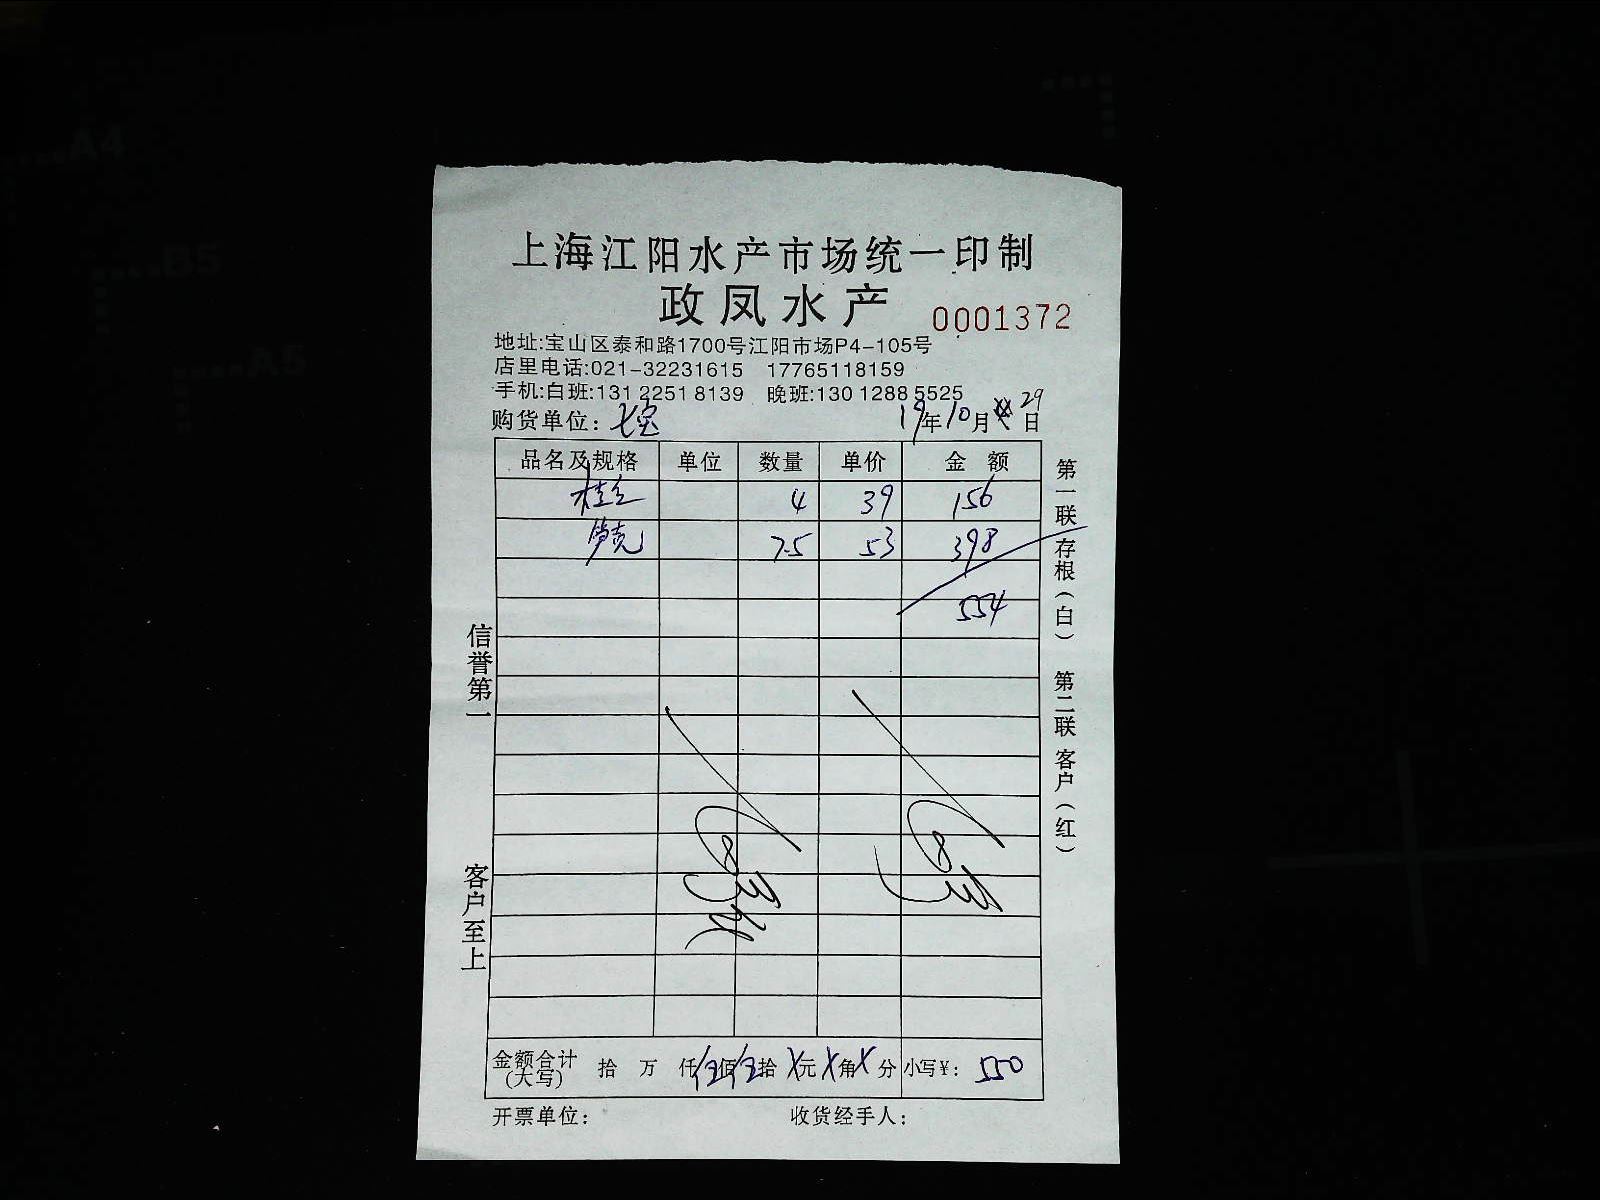 上海江阳水产市场统一印制
政凤水产 0001372
地址:宝山区泰和路1700号江阳市场P4-105号
店里电话:021-32231615 17765118159
手机:白班:131 2251 8139 晚班:130 1288 5525
购货单位: 七宝 19年10月29日
品名及规格 单位 数量 单价 金额
桂 4 39 156
笋壳 7.5 53 398
554
信誉第一
客户至上
第一联 存根(白) 第二联 客户(红)
金额合计(大写) 拾 万 仟 伍佰 伍拾 X元 X角 X分 小写¥: 550
开票单位: 收货经手人:
A4
B5
A5